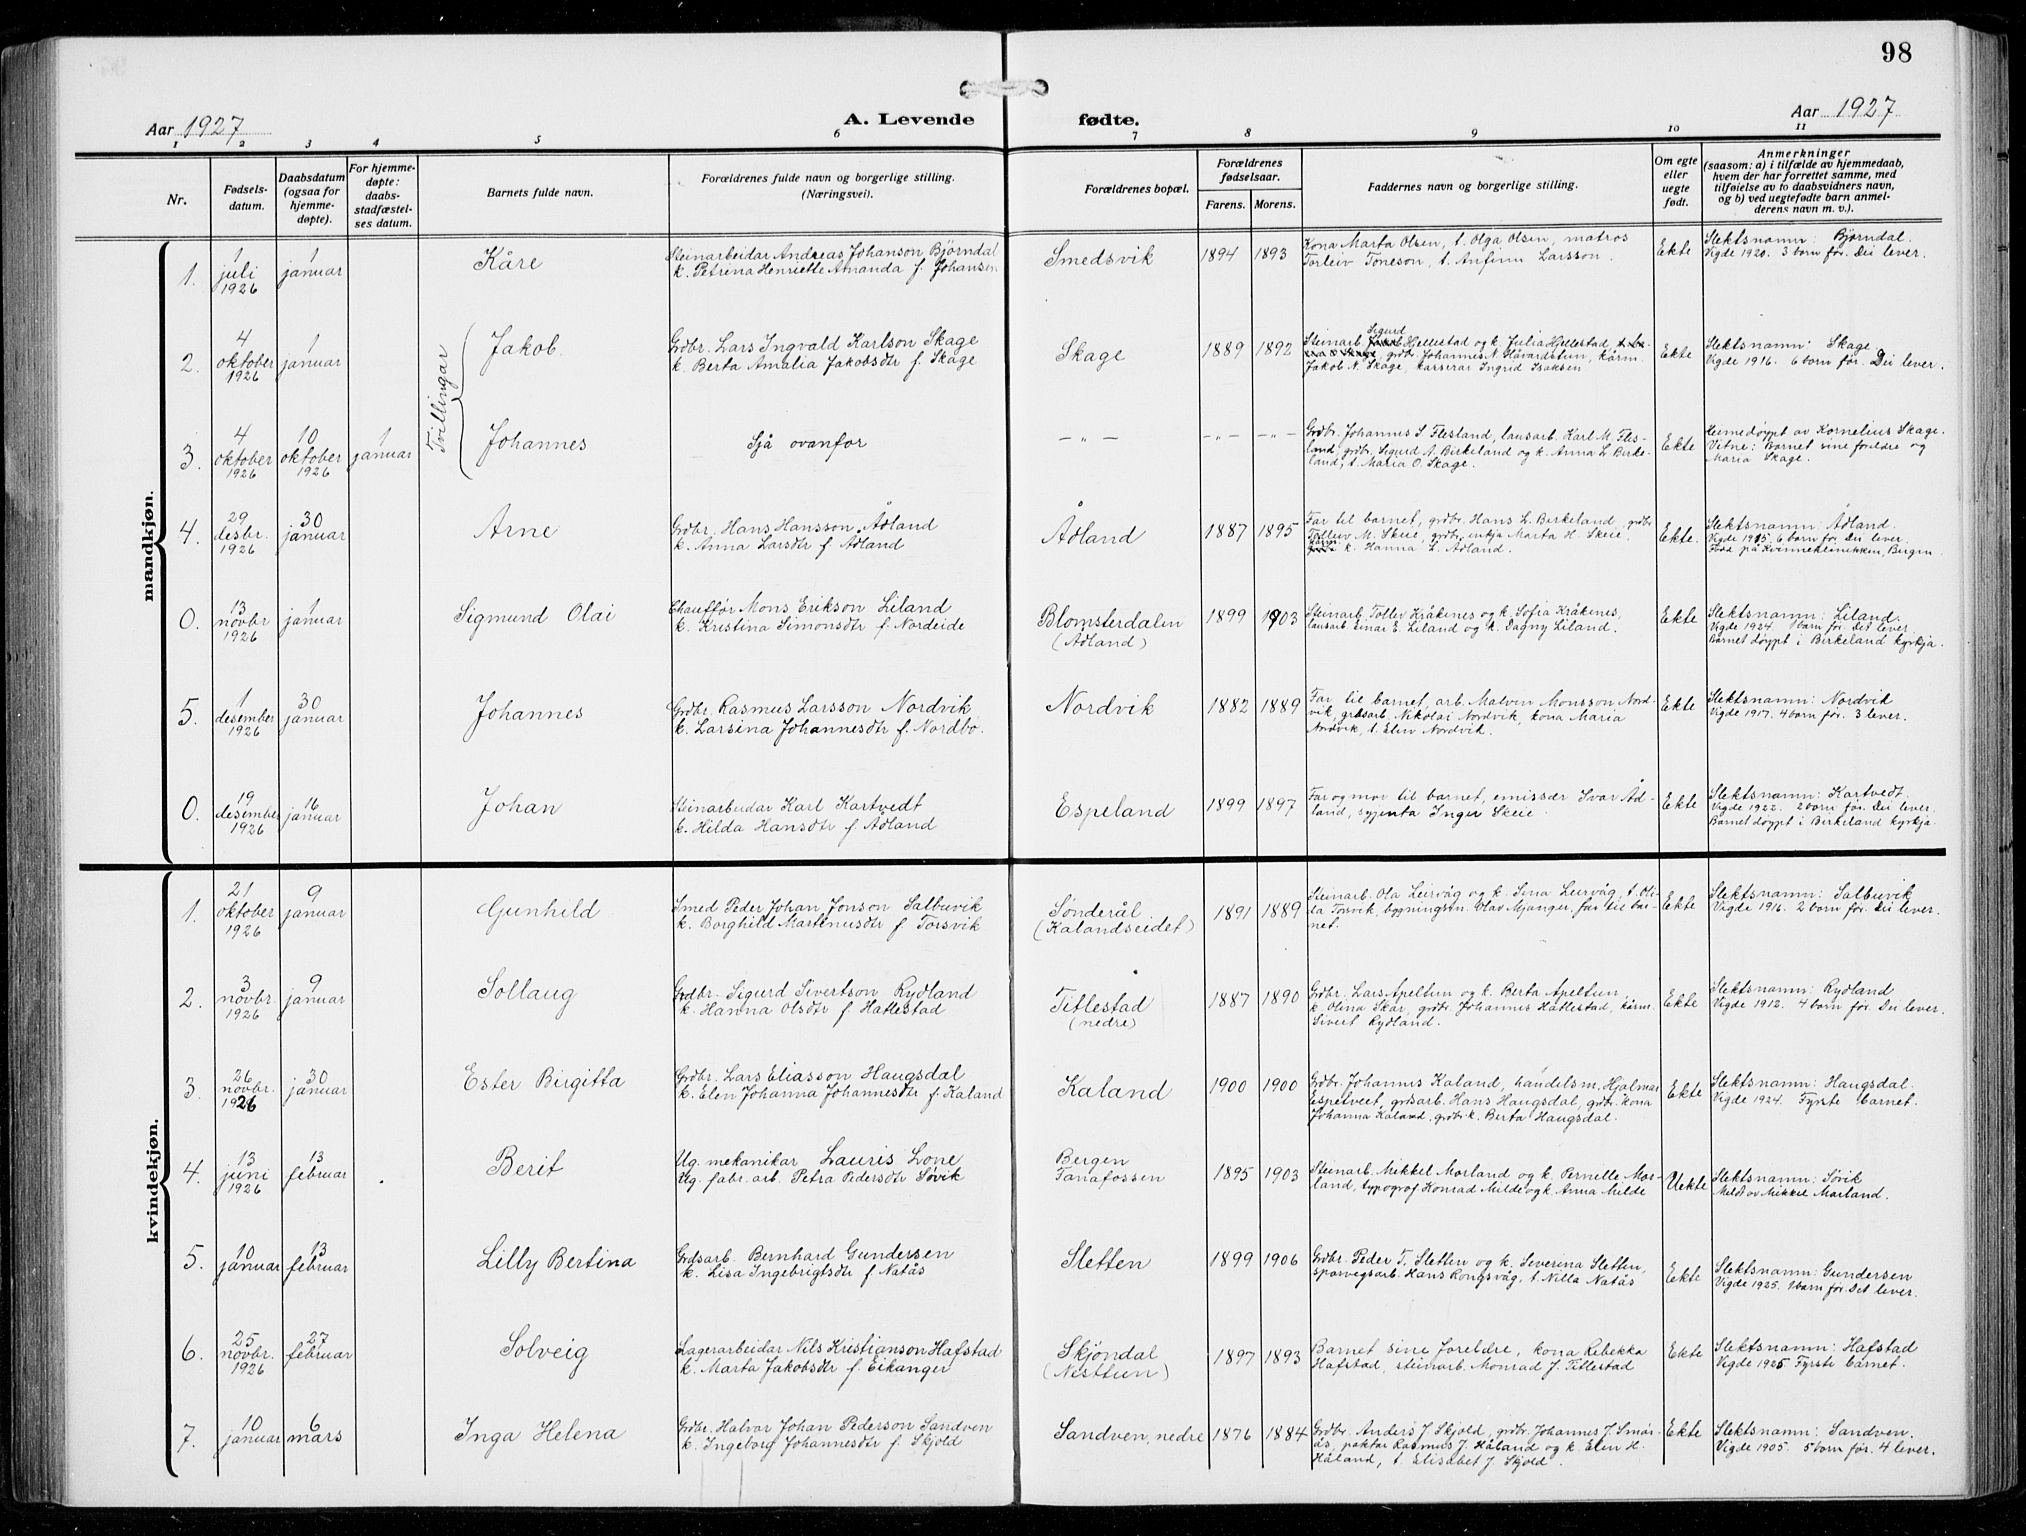 98
Aar 1927
A. Levende fødte.
Aar 1927
1 2 3 4 5 6 7 8 9 10 11
Nr.
Fødsels-
datum.
Daabsdatum
(ogsaa for
hjemme-
døpte).
For hjemme-
døpte:
daabs-
stadfæstel-
ses datum.
Barnets fulde navn.
Forældrenes fulde navn og borgerlige stilling.
(Næringsvei).
Forældrenes bopæl.
Forældrenes
fødselsaar.
Farens. Morens.
Faddernes navn og borgerlige stilling.
Om egte
eller
uegte
født.
Anmerkninger
(saasom: a) i tilfælde av hjemmedaab,
hvem der har forrettet samme, med
tilføielse av to daabsvidners navn,
og b) ved uegtefødte barn anmel-
derens navn m. v.).
mandkjøn.
1.
1
juli
1926
1
januar
Kåre
Steinarbeidar Andreas Johanson Bjørndal
k. Petrina Henriette Amanda f. Johansen
Smedsvik
1894 1893
Kona Marta Olsen, t. Olga Olsen, matros
Torleiv Toneson, t. Anfinn Larsson.
Ekte
Slektsnamn: Bjørndal.
Vigde 1920. 3 born før. Dei lever.
2.
4
oktober
1926
1
januar
Tvillingar
Jakob.
Grdbr. Lars Ingvald Karlson Skage
k. Berta Amalia Jakobsdtr f. Skage
Skage
1889 1892
Sigurd
Steinarb. Hellestad og k. Julia Hellestad,
grdbr. Johannes N. Håvardstun, kårm.
Jakob N. Skage, kasserar Ingrid Isaksen
Ekte
Slektsnamn: Skage.
Vigde 1916. 6 born før. Dei lever.
3.
4
oktober
1926
10
oktober
1926
1
januar
Johannes
Sjå ovanfor
– „ –
– „ – – „ –
Grdbr. Johannes S. Flesland, lausarb. Karl M. Fles-
land, grdbr. Sigurd A. Birkeland og k. Anna L. Birke-
land, t. Maria O. Skage.
Ekte
Heimedøypt av Kornelius Skage.
Vitne: Barnet sine foreldre og
Maria Skage.
4.
29
desbr.
1926
30
januar
Arne
Grdbr. Hans Hansson Ådland
k. Anna Larsdtr f. Ådland
Ådland
1887 1895
Far til barnet, grdbr. Hans L. Birkeland, grdbr
Tolleiv M. Skeie, grdbr. enkja Marta H. Skeie,
k. Hanna L. Ådland.
Ekte.
Slektsnamn: Ådland.
Vigde 1915. 6 born før. Dei lever.
Fødd på Kvinneklinikken, Bergen.
0.
13
novbr
1926
1
januar
Sigmund Olai
Chauffør Mons Erikson Liland
k. Kristina Simonsdtr f. Nordeide
Blomsterdalen
(Ådland)
1899 1903
Steinarb. Tollev Kråkenes og k. Sofia Kråkenes,
lausarb. Einar E. Liland og k. Dagny Liland.
Ekte
Slektsnamn: Liland.
Vigde 1924. 1 born før. Det lever
Barnet døypt i Birkeland kyrkja.
5.
1
desember
1926
30
januar
Johannes
Grdbr. Rasmus Larsson Nordvik
k. Larsina Johannesdtr f. Nordbø.
Nordvik
1882 1889
Far til barnet, arb. Malvin Monsson Nord-
vik, grdsarb. Nikolai Nordvik, kona Maria
Nordvik, t. Elen Nordvik.
Ekte
Slektsnamn: Nordvik
Vigde 1917. 4 born før. 3 lever.
0.
19
desember
1926
16
januar
Johan
Steinarbeidar Karl Kartvedt
k. Hilda Hansdtr f. Ådland
Espeland
1899 1897
Far og mor til barnet, emissær Ivar Åd-
land, syjenta Inger Skeie.
Ekte
Slektsnamn: Kartvedt.
Vigde 1922. 2 born før. Dei lever.
Barnet døypt i Birkeland kyrkja.
kvindekjøn.
1.
21
oktober
1926
9
januar
Gunhild
Smed Peder Johan Jonson Salbuvik
k. Borghild Martinusdtr f. Torsvik
Sønderål
(Kalandseidet)
1891 1889
Steinarb. Ola Leirvåg og k. Sina Leirvåg, t. Oli-
da Torsvik, bygningsm. Olav Mjanger, far til bar-
net.
Ekte
Slektsnamn: Salbuvik
Vigde 1916. 2 born før. Dei lever.
2.
3
novbr.
1926
9
januar
Sollaug
Grdbr. Sigurd Sivertson Rydland
k. Hanna Olsdtr f. Hatlestad
Titlestad
(nedre)
1887 1890
Grdbr. Lars Apeltun og k. Berta Apeltun,
k. Olina Skår, grdbr. Johannes Hatlestad, kårm.
Sivert Rydland.
Ekte
Slektsnamn: Rydland
Vigde 1912. 4 born før. Dei lever.
3.
26
novbr.
1926
30
januar
Ester Birgitta
Grdbr. Lars Eliasson Haugsdal
k. Elen Johanna Johannesdtr f. Kaland
Kaland
1900 1900
Grdbr. Johannes Kaland, handelsm. Hjalmar
Espetveit, grdsarb. Hans Haugsdal, grdbr. kona
Johanna Kaland, grdbr. k. Berta Haugsdal.
Ekte
Slektsnamn: Haugsdal.
Vigde 1924. Fyrste barnet.
4.
13
juni
1926
13
februar
Berit
Ug. mekanikar Lauris Lone
Ug. fabr. arb. Petra Pedersdtr Søvik
Bergen
Fanafossen
1895 1903
Steinarb. Mikkel Morland og k. Pernelle Mor-
land, typograf Konrad Milde og k. Anna Milde
Uekte
Slektsnamn: Søvik
Meldt av Mikkel Morland.
5.
10
januar
13
februar
Lilly Bertina
Grdsarb. Bernhard Gundersen
k. Lisa Ingebrigtsdtr f. Natås
Sletten
1899 1906
Grdbr. Peder T. Sletten og k. Severina Sletten,
sporvegsarb. Hans Rongsvåg, t. Nilla Natås
Ekte
Slektsnamn: Gundersen
Vigde 1925. 1 born før. Det lever.
6.
25
novbr.
1926
27
februar
Solveig
Lagerarbeidar Nils Kristianson Hafstad
k. Marta Jakobsdtr f. Eikanger
Skjøndal
(Nesttun)
1897 1893
Barnet sine foreldre, kona Rebekka
Hafstad, steinarb. Monrad J. Titlestad
Ekte
Slektsnamn: Hafstad
Vigde 1925 Fyrste barnet.
7.
10
januar
6
mars
Inga Helena
Grdbr. Halvar Johan Pederson Sandven
k. Ingeborg Johannesdtr f. Skjold
Sandven, nedre
1876 1884
Grdbr. Anders J. Skjold, grdbr. Johannes J. Smør-
ås, paktar Rasmus J. Håland og k. Elen H.
Håland, t. Elisabet J. Skjold.
Ekte
Slektsnamn: Sandven.
Vigde 1905. 5 born før. 4 lever.